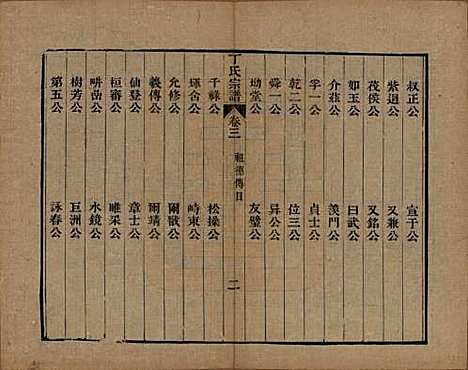 叔正公 宣于公
紫廻公 又兼公
茂侯公 又銘公
如玉公 曰武公
介莊公 羨門公
孚一公 貞士公
乾二公 位三公
舜一公 昇公公
坳堂公 友璧公
丁氏宗譜 卷三 祖德傳目 二
千祿公 松操公
輝舍公 峙東公
允修公 爾猷公
義傳公 爾靖公
仙登公 章士公
桓審公 雎采公
畊嵒公 水鏡公
樹芳公 巨洲公
第五公 詠春公